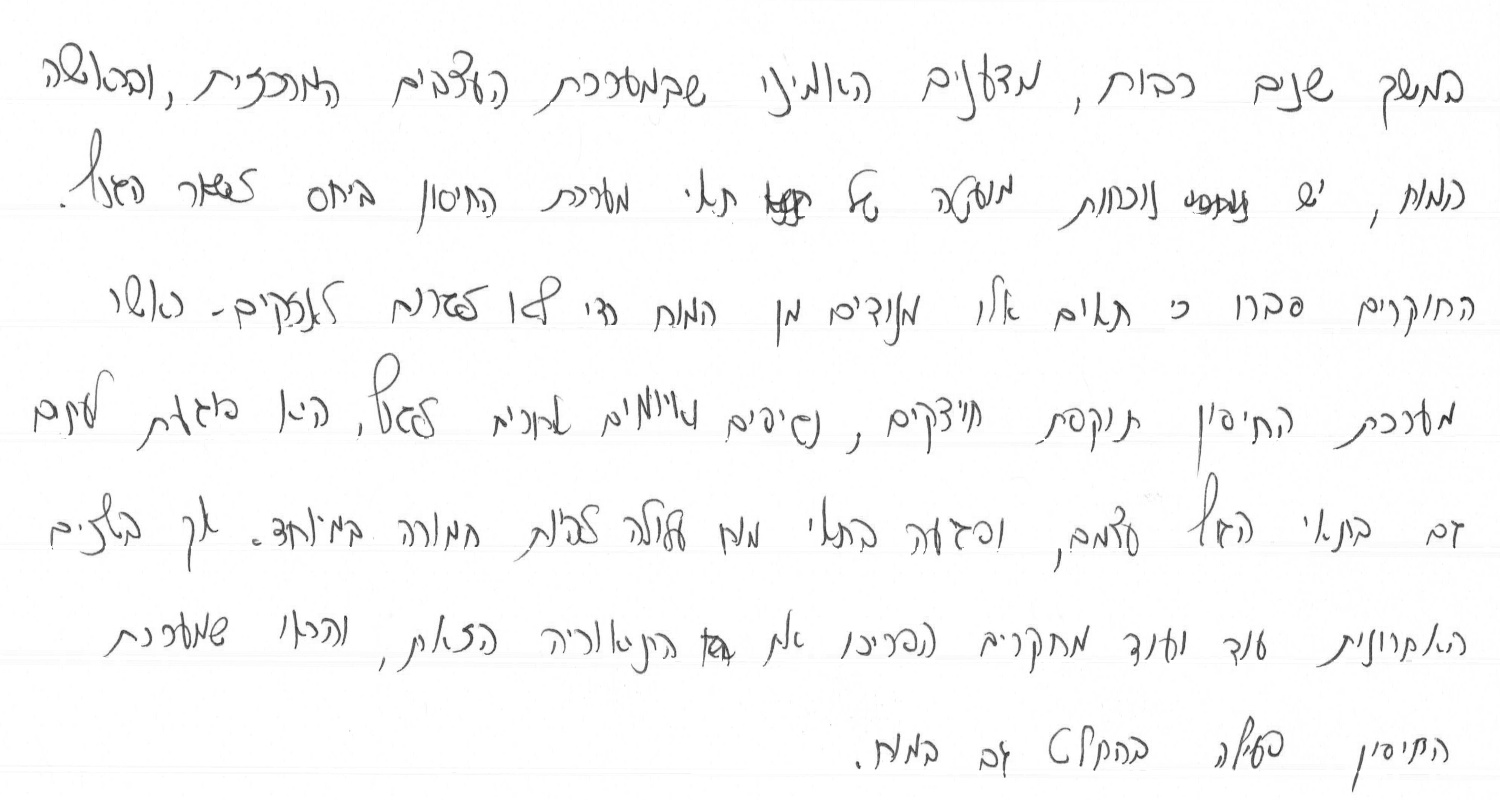 במשך שנים רבות, מדענים האמינו שבמערכת העצבים המרכזית, ובראשה
המוח, יש נוכחות מועטה של תאי מערכת החיסון ביחס לשאר הגוף.
החוקרים סברו כי תאים אלו מנודים מן המוח כדי לא לגרום לנזקים - כאשר
מערכת החיסון תוקפת חיידקים, נגיפים ואיומים אחרים לגוף, היא פוגעת לעתים
גם בתאי הגוף עצמם, ופגיעה בתאי מוח עלולה להיות חמורה במיוחד. אך בשנים
האחרונות עוד ועוד מחקרים הפריכו את התיאוריה הזאת, והראו שמערכת
החיסון פעילה בהחלט גם במוח.